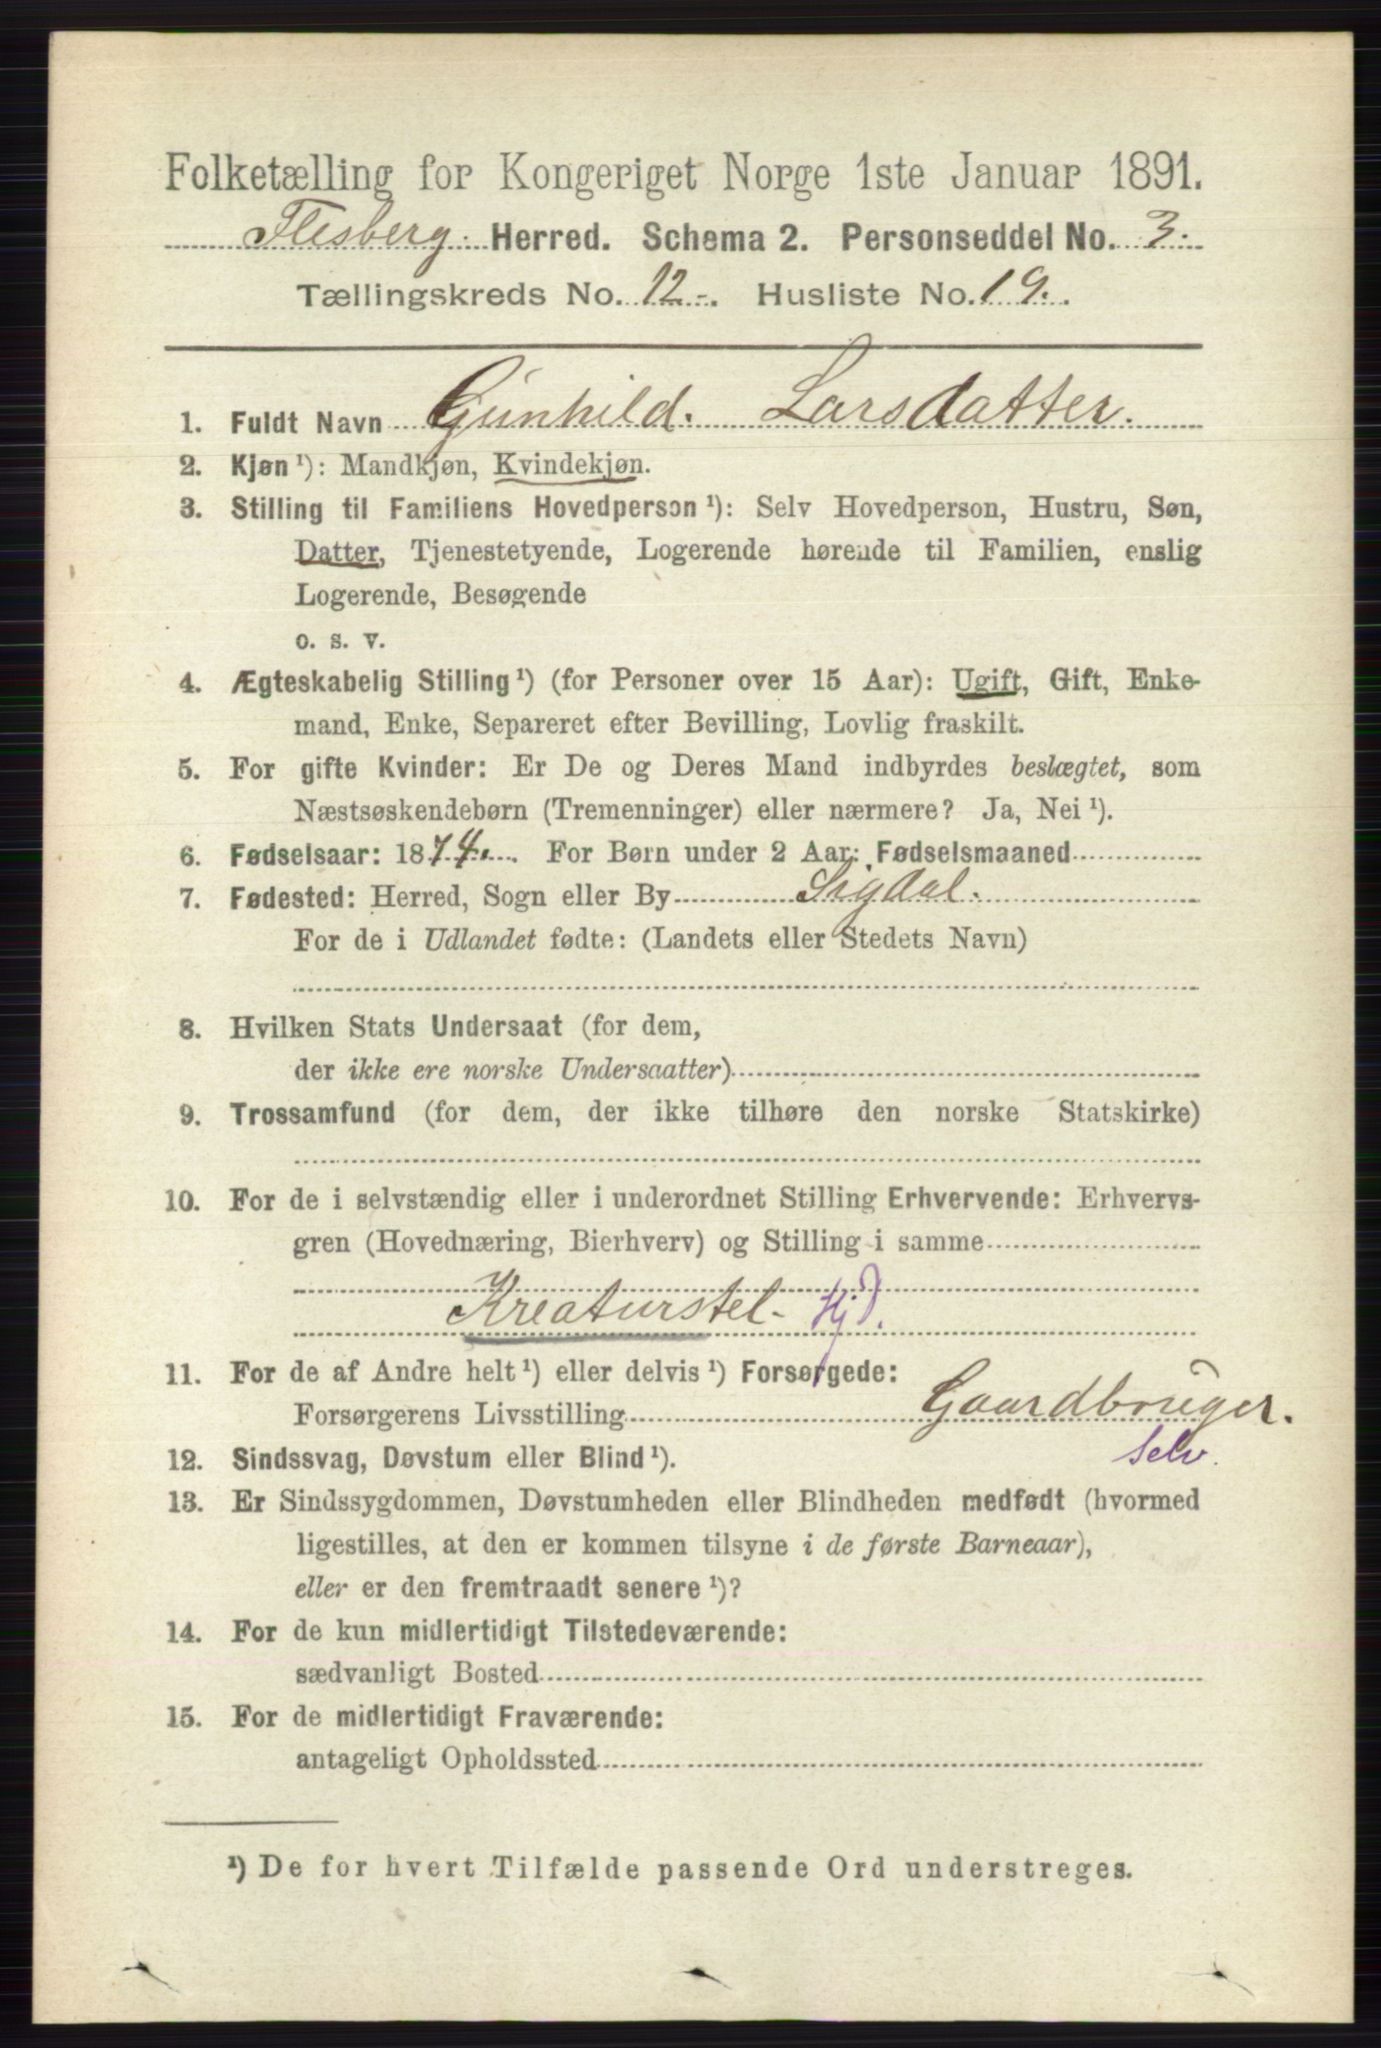 Folketælling for Kongeriget Norge 1ste Januar 1891.
Flesberg. Herred. Schema 2. Personseddel No. 3.
Tællingskreds No. 12. Husliste No. 19.
1. Fuldt Navn Gunhild. Larsdatter.
2. Kjøn ¹): Mandkjøn, Kvindekjøn.
3. Stilling til Familiens Hovedperson ¹): Selv Hovedperson, Hustru, Søn,
Datter, Tjenestetyende, Logerende hørende til Familien, enslig
Logerende, Besøgende
o. s. v.
4. Ægteskabelig Stilling ¹) (for Personer over 15 Aar): Ugift, Gift, Enke-
mand, Enke, Separeret efter Bevilling, Lovlig fraskilt.
5. For gifte Kvinder: Er De og Deres Mand indbyrdes beslægtet, som
Næstsøskendebørn (Tremenninger) eller nærmere? Ja, Nei ¹).
6. Fødselsaar: 1874. For Børn under 2 Aar: Fødselsmaaned
7. Fødested: Herred, Sogn eller By Sigdal.
For de i Udlandet fødte: (Landets eller Stedets Navn)
8. Hvilken Stats Undersaat (for dem,
der ikke ere norske Undersaatter)
9. Trossamfund (for dem, der ikke tilhøre den norske Statskirke)
10. For de i selvstændig eller i underordnet Stilling Erhvervende: Erhvervs-
gren (Hovednæring, Bierhverv) og Stilling i samme
Kreaturstel- Hjd.
11. For de af Andre helt ¹) eller delvis ¹) Forsørgede:
Forsørgerens Livsstilling Gaardbruger.
selv.
12. Sindssvag, Døvstum eller Blind ¹).
13. Er Sindssygdommen, Døvstumheden eller Blindheden medfødt (hvormed
ligestilles, at den er kommen tilsyne i de første Barneaar),
eller er den fremtraadt senere ¹)?
14. For de kun midlertidigt Tilstedeværende:
sædvanligt Bosted
15. For de midlertidigt Fraværende:
antageligt Opholdssted
¹) De for hvert Tilfælde passende Ord understreges.